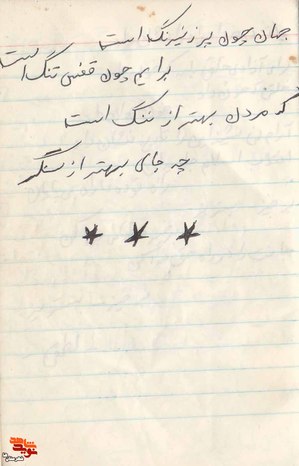 جهان چون پر ز نیرنگ است
برایم چون قفس تنگ است
که مردن بهتر از ننگ است
چه جای بهتر از سنگر
نوید شاهد